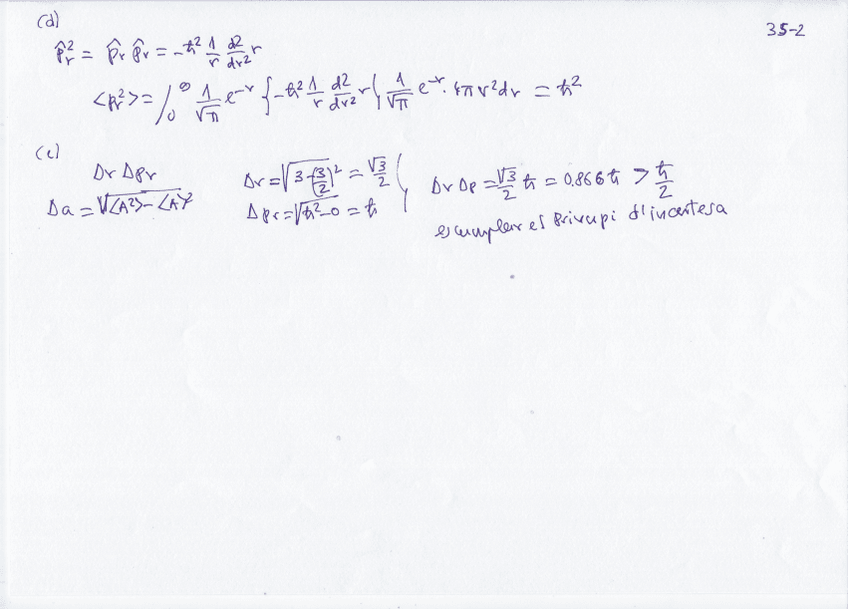 (d)
35-2
p̂r² = p̂r p̂r = -ħ² 1/r d2/dr² r
<pr²> = ∫₀^∞ 1/√π e^-r {-ħ² 1/r d2/dr² r} 1/√π e^-r · 4πr²dr = ħ²
(e)
Δr Δpr
Δa = √(<A²> - <A>²)
Δr = √(3-(3/2)²) = √3/2
Δpr = √(ħ²-0) = ħ
Δr Δp = √3/2 ħ = 0.866ħ > ħ/2
es cumpleix es principi d'incertesa